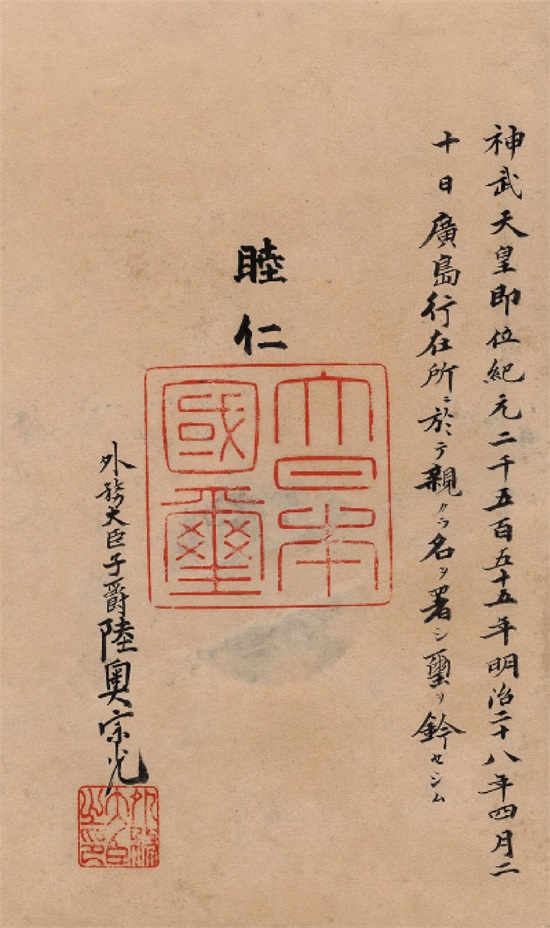 神武天皇即位紀元二千五百五十五年明治二十八年四月二
十日廣島行在所ニ於テ親クラ名ヲ署シ璽ヲ鈐セシム
睦仁
大日本國璽
外務大臣子爵陸奥宗光
外務大臣之印